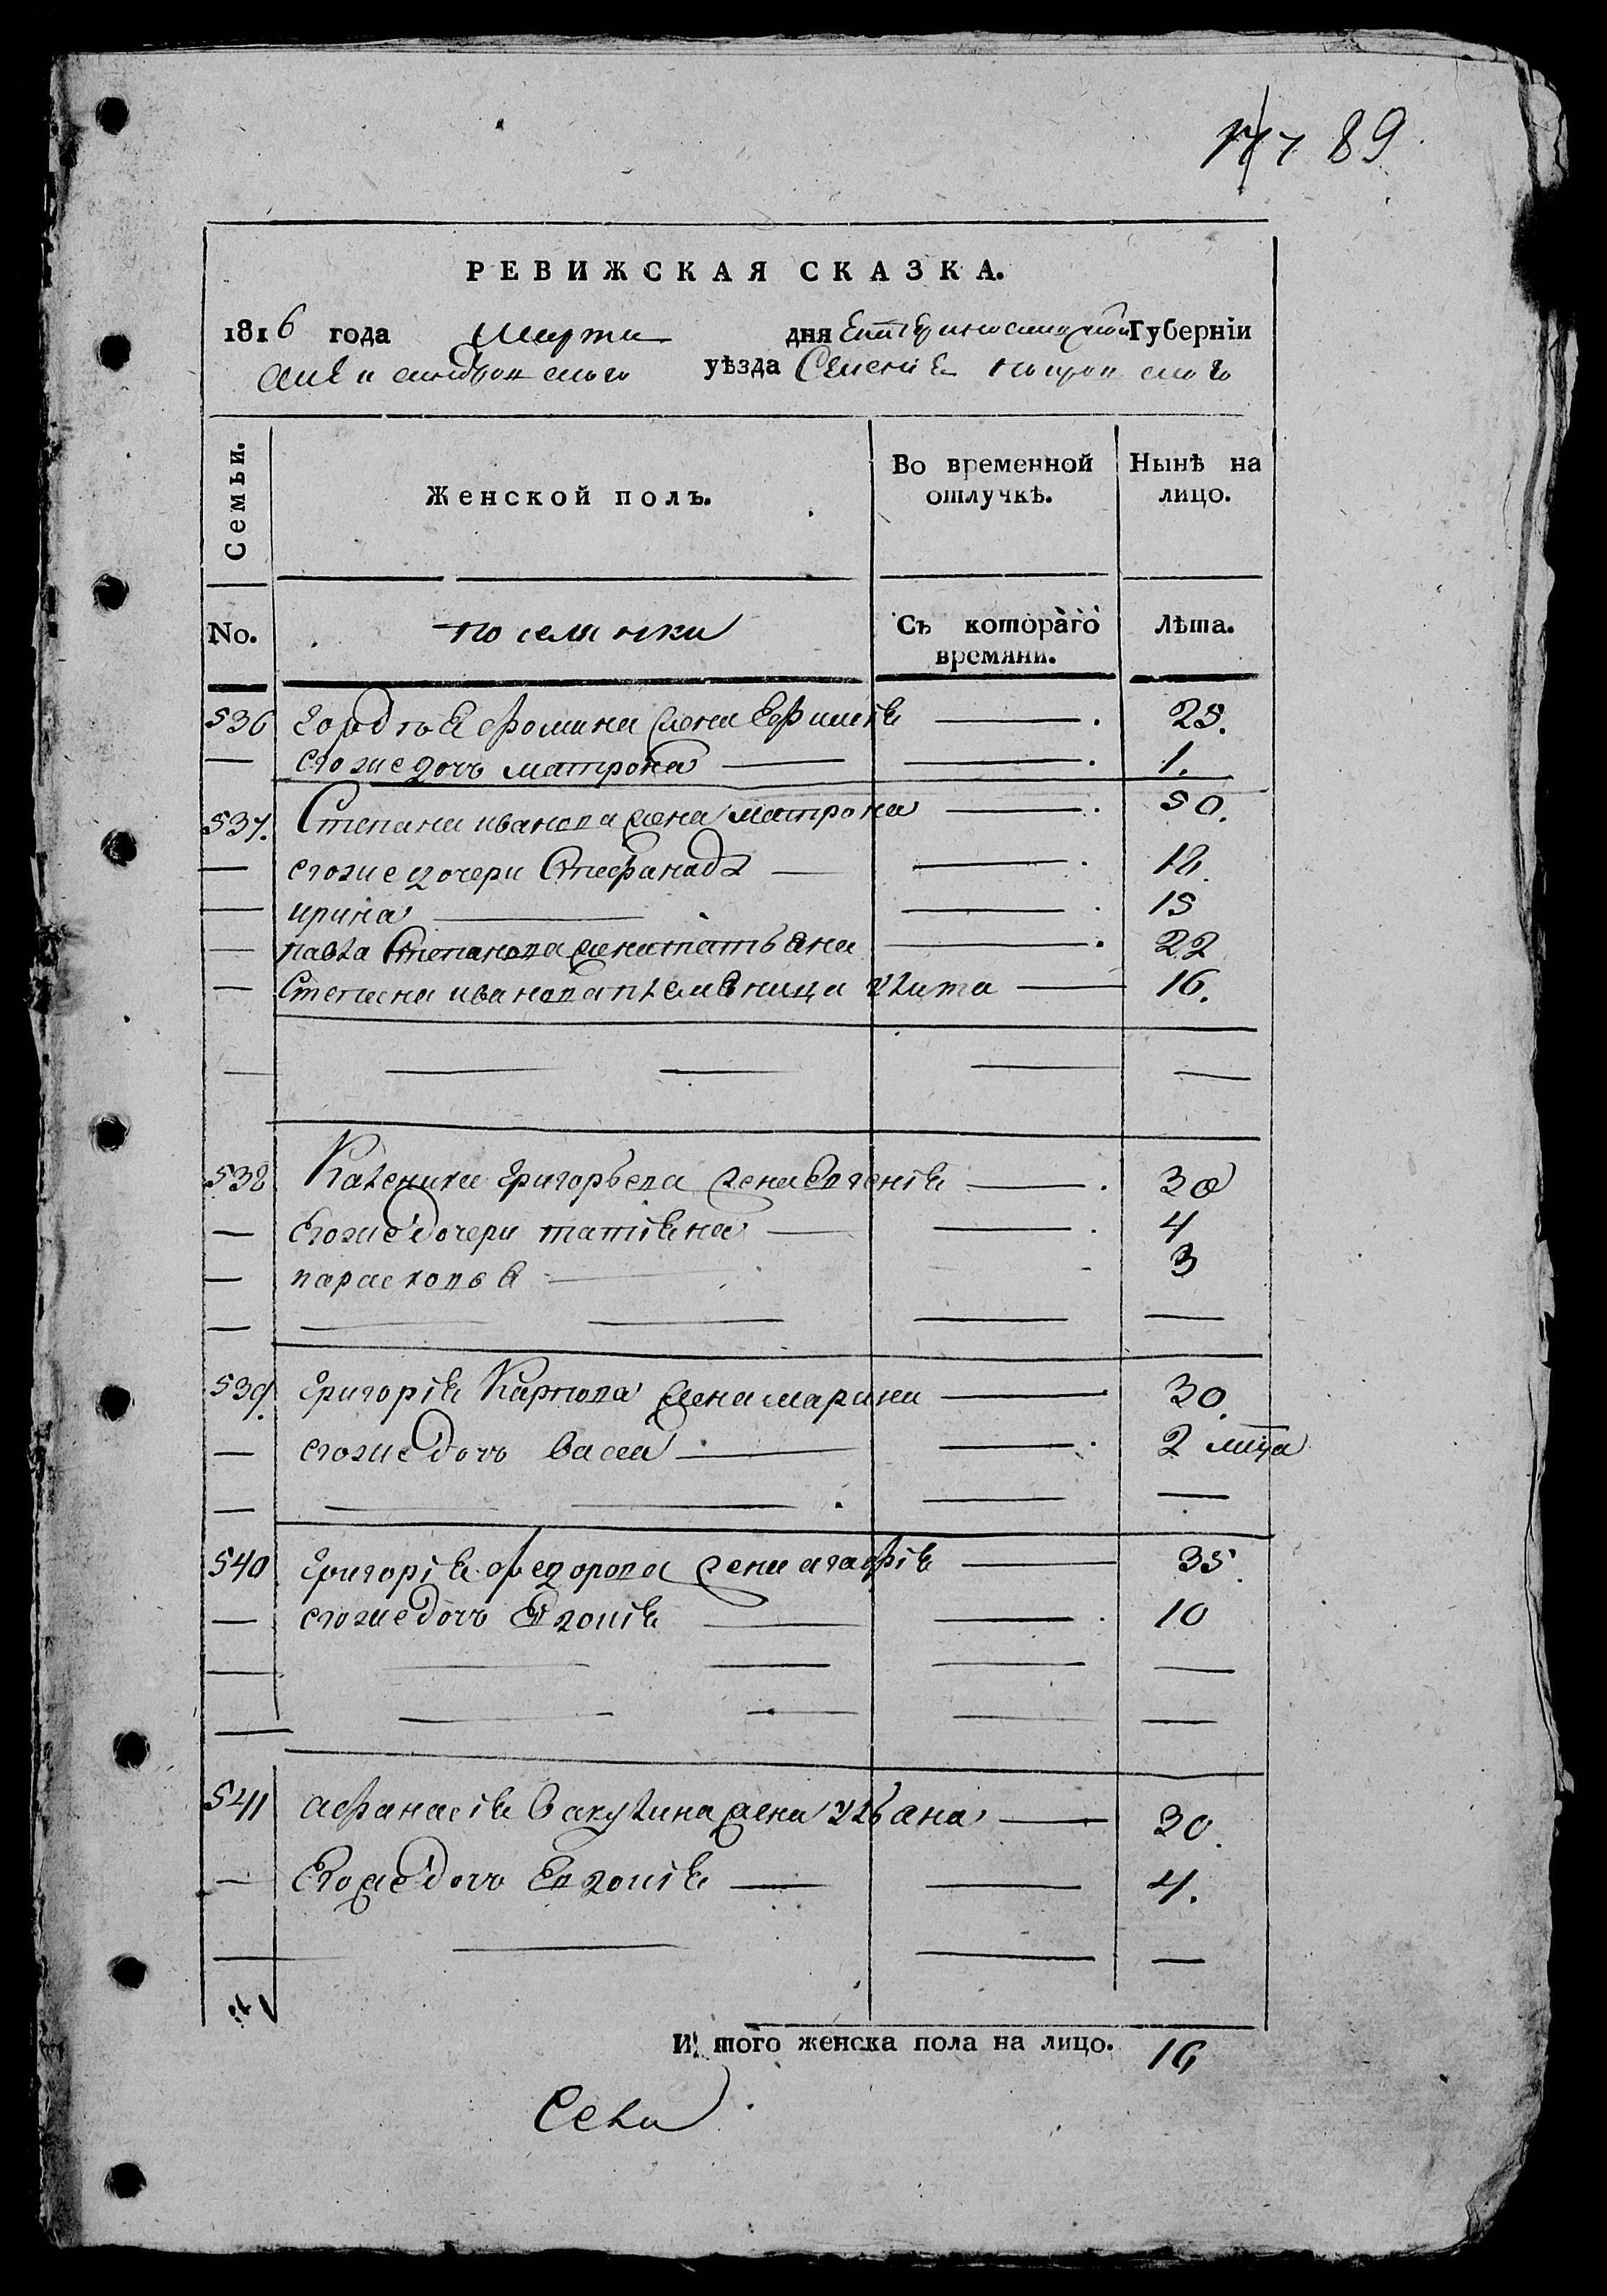 177 89
РЕВИЖСКАЯ СКАЗКА.
1816 года Марта дня Екатеринославской Губерніи
Александровского уѣзда Селенія Покровского
Семьи. Женской полъ. Во временной отлучкѣ. Нынѣ на лицо.
No. поселянки Съ котораго времяни. Лѣта.
536 Гордѣя Фомина жена Ефимія — 25.
— егоже дочь матрона — 1.
537. Степана иванова жена матрона — 50.
— егоже дочери Стефанада — 18.
— ирина — 15
— павла Степанова жена татьяна — 22
— Степана иванова племяница улита — 16.
538 Каленика григорьева жена Евгенія — 30
— Егоже дочери татіяна — 4
— парасковья — 3
539. григорія Карпова жена марина — 30.
— егоже дочь васса — 2 мца
540 григорія федорова жена агафія — 35.
— егоже дочь Евдокія — 10
541 афанасія Вакулина жена ульяна — 30.
— Егоже дочь Евдокія — 4.
И того женска пола на лицо. 16
Села